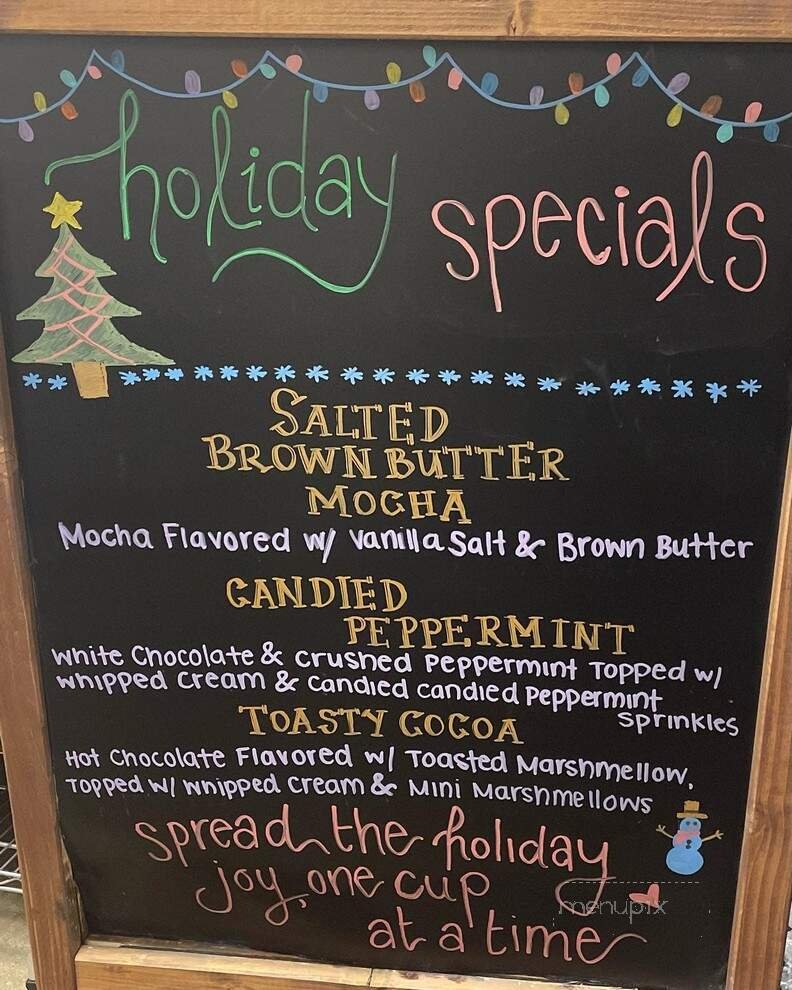 holiday specials
SALTED
BROWN BUTTER
MOCHA
Mocha Flavored w/ Vanilla Salt & Brown Butter
CANDIED
PEPPERMINT
White Chocolate & crushed Peppermint Topped w/
whipped cream & candied candied peppermint
sprinkles
TOASTY COCOA
Hot Chocolate Flavored w/ Toasted Marshmellow,
Topped w/ Whipped Cream & Mini Marshmellows
spread the holiday
joy, one cup
at a time
menupix